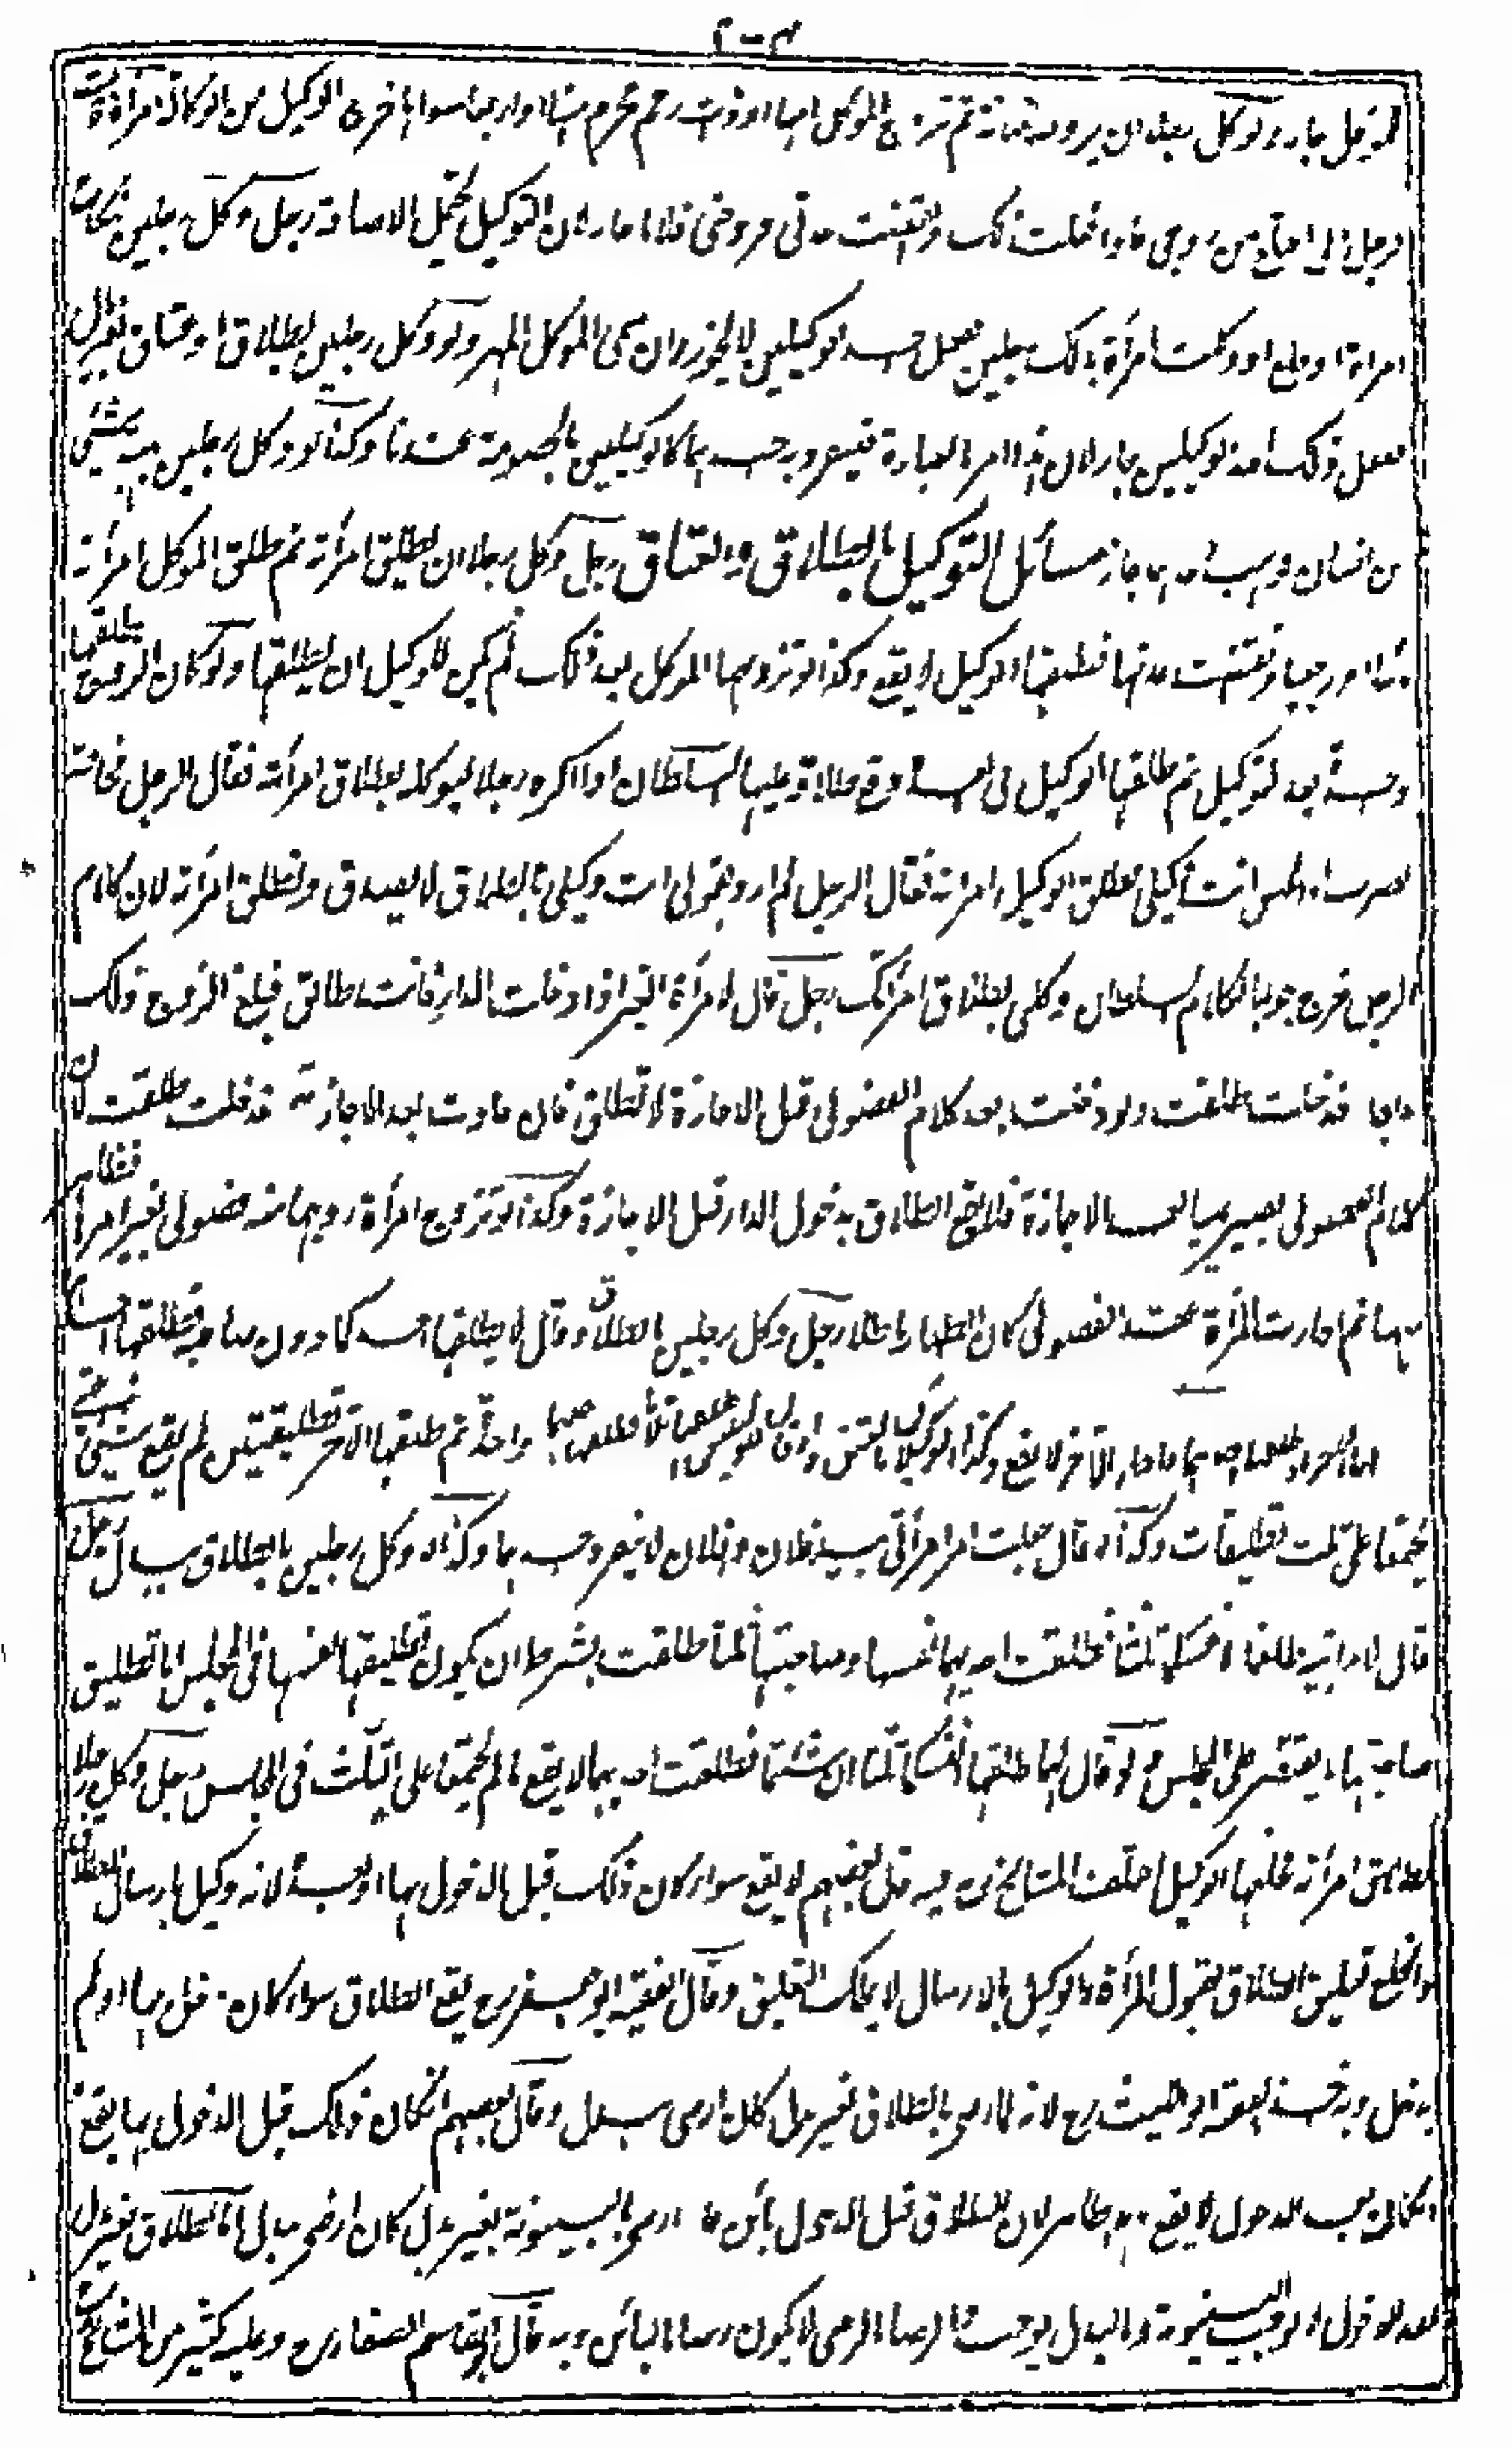 جاز ولو وكل بعد ان ثم تزوج الموكل امها او ذات رحم محرم منها او اربعا سواها خرج الوكيل من الوكالة امرأة قالت
لرجل انى من زوجى فاذا فعلت ذلك وانقضت عدتى فزوجنى فلانا جاز لان التوكيل يحتمل الاضافة رجل وكل رجلين بنكاح
امرأة او خلع او وكلت امرأة بذلك رجلين ففعل احد الوكيلين لا يجوز وان سمى الموكل المهر ولو وكل رجلين بطلاق او عتاق بغير مال
ففعل ذلك احد الوكيلين جاز لان هذا امر العبارة فينفرد به احدهما كالوكيلين بالخصومة عندنا وكذا لو وكل رجلين بهبة شىء
من انسان وهب احدهما جاز مسائل التوكيل بالطلاق والعتاق رجل وكل رجلا ان يطلق امرأته ثم طلق الموكل امرأته
بائنا او رجعيا وانقضت عدتها فطلقها الوكيل لا يقع وكذا لو تزوجها الموكل بعد ذلك لم يكن للوكيل ان يطلقها ولو كان الزوج طلقها
واحدة بعد التوكيل ثم طلقها الوكيل فى العدة وقع طلاقه عليها السلطان اذا اكره رجلا ليوكله بطلاق امرأته فقال الرجل مخافة
الضرب او الحبس انت وكيلى فطلق الوكيل امرأته فقال الرجل لم ارد بقولى انت وكيلى بالطلاق لا يصدق وتطلق امرأته لان كلام
الرجل خرج جوابا لكلام السلطان وكلنى بطلاق امرأتك رجل قال لامرأة الغير اذا دخلت الدار فانت طالق فبلغ الزوج ذلك
فاجاز فدخلت طلقت ولو دخلت بعد كلام الفضولى قبل الاجازة لا تطلق فان عادت بعد الاجازة فدخلت طلقت لان
كلام الفضولى يصير يمينا بعد الاجازة فلا يقع الطلاق بدخول الدار قبل الاجازة وكذا لو تزوج امرأة زوجها منه فضولى بغير امرها فظاهر
منها ثم اجازت المرأة عقد الفضولى كان الظهار باطلا رجل وكل رجلين بالطلاق وقال لا يطلقها احدكما دون صاحبه فطلقها احدهما
ثم الآخر او طلق احدهما فاجاز الآخر لا يقع وكذا الوكيلان بالعتق ولو قال للوكيلين طلقاها ثلاثا فطلقها احدهما واحدة ثم طلقها الآخر تطليقتين لم يقع شىء حتى
يجتمعا على ثلث تطليقات وكذا لو قال جعلت امر امرأتى بيد فلان وفلان لا ينفرد احدهما وكذا لو وكل رجلين بالطلاق بمال رجل
قال لامرأتيه طلقا انفسكما ثلثا فطلقت احديهما نفسها وصاحبتها ثلثا طلقت بشرط ان يكون تطليقها نفسها فى المجلس اما تطليق
صاحبتها لا يقتصر على المجلس ولو قال لهما طلقا انفسكما ثلثا ان شئتما فطلقت احديهما لا يقع ما لم يجتمعا على الثلث فى المجلس رجل وكل رجلا
بطلاق امرأته فخلعها الوكيل اختلف المشايخ فيه قال بعضهم لا يقع سواء كان ذلك قبل الدخول بها او بعده لانه وكيل بارسال الطلاق
والخلع تعليق الطلاق بقبول المرأة والوكيل بالارسال لا يملك التعليق وقال الفقيه ابو جعفر رح يقع الطلاق سواء كان دخل بها او لم
يدخل وبه اخذ الفقيه ابو الليث رح لانه لما رضى بالطلاق بغير بدل كان ارضى ببدل وقال بعضهم ان كان ذلك قبل الدخول بها يقع
وان كان بعد الدخول لا يقع وهو الظاهر لان الطلاق قبل الدخول بائن فاذا رضى بالبينونة بغير بدل كان ارضى ببدل اما الطلاق بغير بدل
بعد الدخول لا يوجب البينونة وبالبدل يوجب فالرضا بالرجعى لا يكون رضا بالبائن وبه قال ابو القاسم الصفار رح وعليه كثير من المشايخ